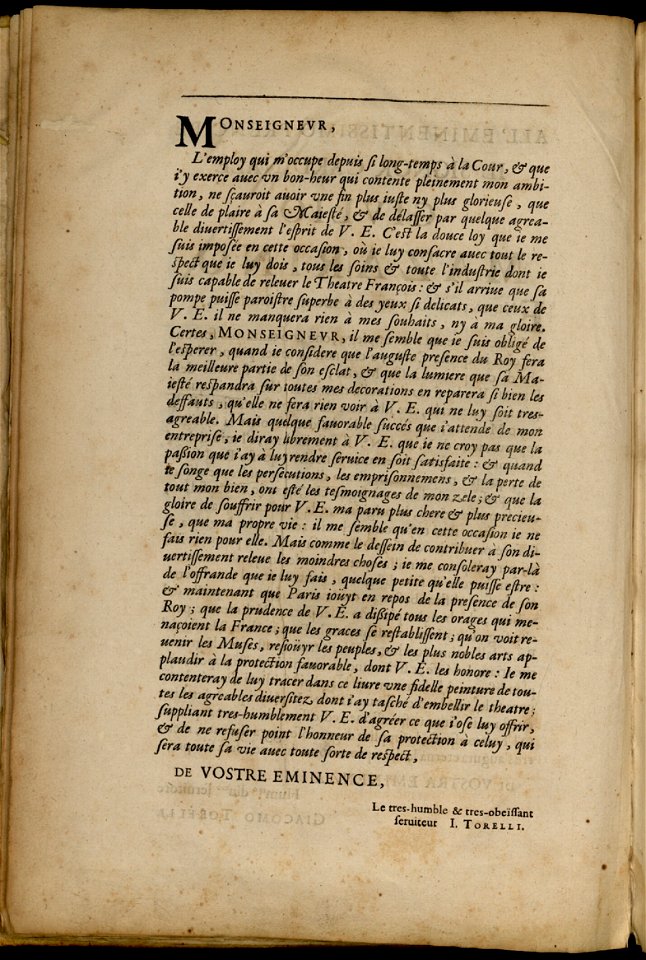 MONSEIGNEVR,
L'employ qui m'occupe depuis ſi long-temps à la Cour, & que
i'y exerce avec vn bon-heur qui contente pleinement mon ambi-
tion, ne ſçauroit auoir vne fin plus iuſte ny plus glorieuſe, que
celle de plaire à ſa Maieſté, & de délaſſer par quelque agrea-
ble divertiſſement l'eſprit de V. E. C'eſt la douce loy que ie me
ſuis impoſée en cette occaſion, où ie luy conſacre avec tout le re-
ſpect que ie luy dois, tous les ſoins & toute l'induſtrie dont ie
ſuis capable de releuer le Theatre François: & s'il arriue que ſa
pompe puiſſe paroiſtre ſuperbe à des yeux ſi delicats, que ceux de
V. E. il ne manquera rien à mes ſouhaits, ny à ma gloire.
Certes, MONSEIGNEVR, il me ſemble que ie ſuis obligé de
l'eſperer, quand ie conſidere que l'auguſte preſence du Roy fera
la meilleure partie de ſon eſclat, & que la lumiere que ſa Ma-
ieſté reſpandra ſur toutes mes decorations en reparera ſi bien les
deffauts, qu'elle ne fera rien voir à V. E. qui ne luy ſoit tres-
agreable. Mais quelque fauorable ſuccés que i'attende de mon
entrepriſe, ie diray librement à V. E. que ie ne croy pas que la
paſſion que i'ay à luy rendre ſeruice en ſoit ſatisfaite: & quand
ie ſonge que les perſecutions, les empriſonnemens, & la perte de
tout mon bien, ont eſté les teſmoignages de mon zele; & que la
gloire de ſouffrir pour V. E. ma paru plus chere & plus precieu-
ſe, que ma propre vie: il me ſemble qu'en cette occaſion ie ne
fais rien pour elle. Mais comme le deſſein de contribuer à ſon di-
uertiſſement releue les moindres choſes; ie me conſoleray par-là
de l'offrande que ie luy fais, quelque petite qu'elle puiſſe eſtre:
& maintenant que Paris ioüyt en repos de la preſence de ſon
Roy; que la prudence de V. E. a diſſipé tous les orages qui me-
naçoient la France; que les graces ſe reſtabliſſent; qu'on voit re-
uenir les Muſes, reſioüyr les peuples, & les plus nobles arts ap-
plaudir à la protection fauorable, dont V. E. les honore: Ie me
contenteray de luy tracer dans ce liure vne fidelle peinture de tou-
tes les agreables diverſitez, dont i'ay taſché d'embellir le theatre;
ſuppliant tres-humblement V. E. d'agréer ce que i'oſe luy offrir,
& de ne refuſer point l'honneur de ſa protection à celuy, qui
ſera toute ſa vie avec toute ſorte de reſpect,
DE VOSTRE EMINENCE,
Le tres-humble & tres-obeïſſant
ſeruiteur I. TORELLI.